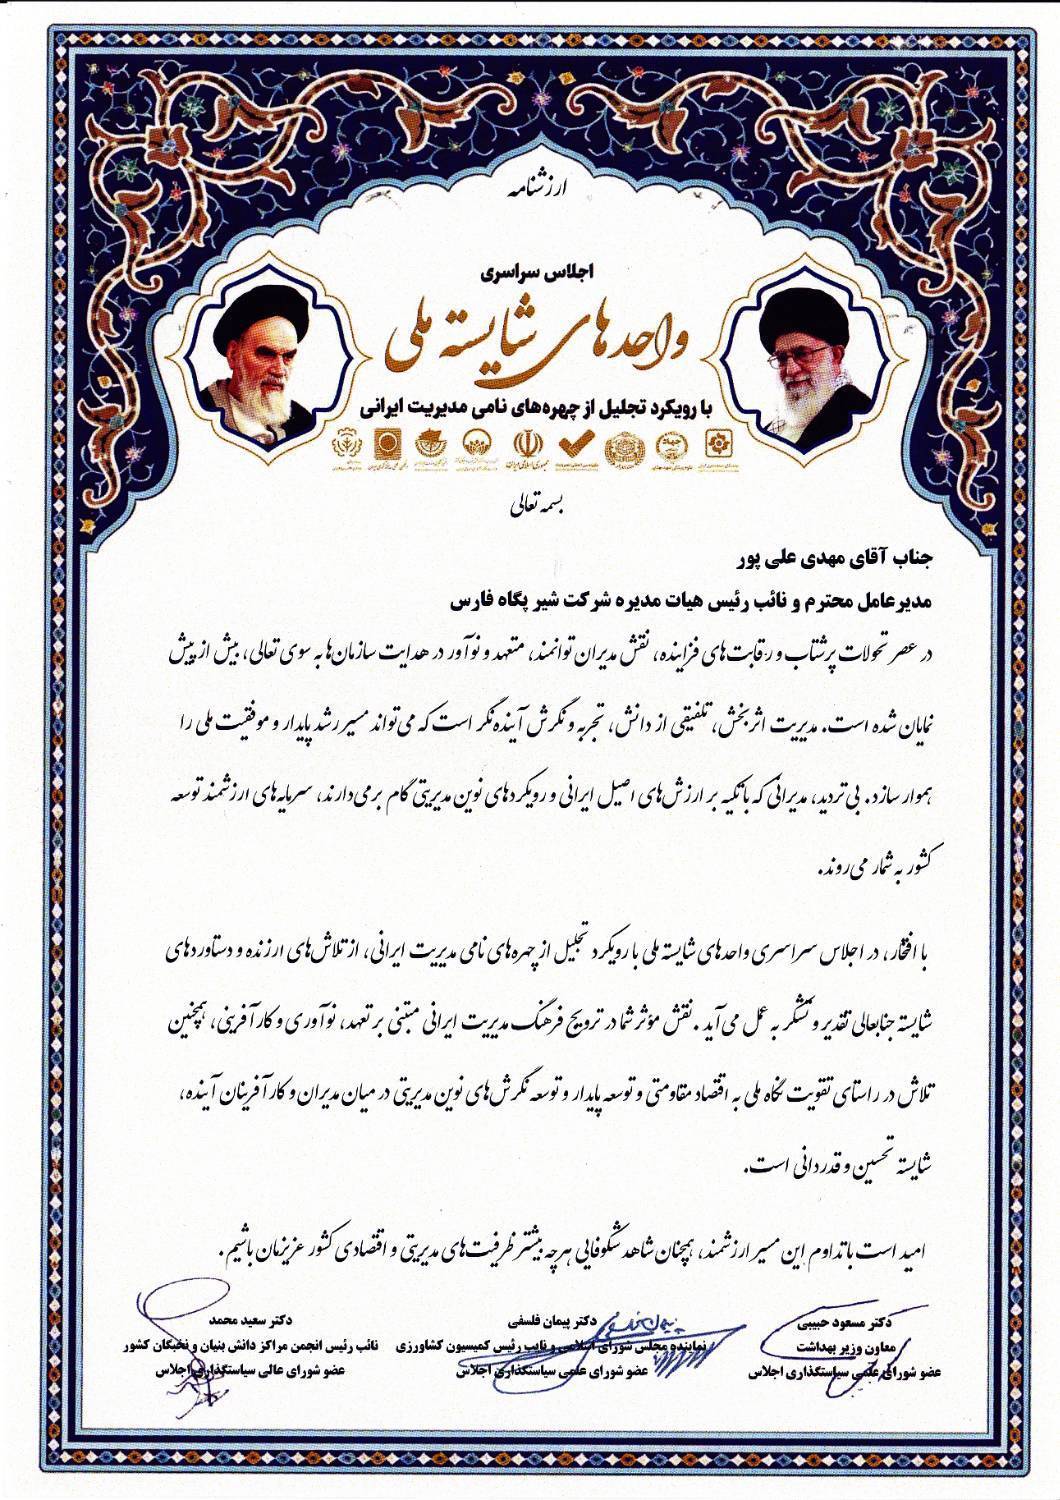 ارزشنامه
اجلاس سراسری
واحدهای شایسته ملی
با رویکرد تجلیل از چهره‌های نامی مدیریت ایرانی
جمهوری اسلامی ایران
بسمه تعالی
جناب آقای مهدی علی پور
مدیرعامل محترم و نائب رئیس هیات مدیره شرکت شیر پگاه فارس
در عصر تحولات پرشتاب و رقابت‌های فزاینده، نقش مدیران توانمند، متعهد و نوآور در هدایت سازمان‌ها به سوی تعالی، بیش از پیش
نمایان شده است. مدیریت اثربخش، تلفیقی از دانش، تجربه و نگرش آینده‌نگر است که می‌تواند مسیر رشد پایدار و موفقیت ملی را
هموار سازد. بی‌تردید، مدیرانی که با تکیه بر ارزش‌های اصیل ایرانی و رویکردهای نوین مدیریتی گام برمی‌دارند، سرمایه‌های ارزشمند توسعه
کشور به شمار می‌روند.
با افتخار، در اجلاس سراسری واحدهای شایسته ملی با رویکرد تجلیل از چهره‌های نامی مدیریت ایرانی، از تلاش‌های ارزنده و دستاوردهای
شایسته جنابعالی تقدیر و تشکر به عمل می‌آید. نقش مؤثر شما در ترویج فرهنگ مدیریت ایرانی مبتنی بر تعهد، نوآوری و کارآفرینی، همچنین
تلاش در راستای تقویت نگاه ملی به اقتصاد مقاومتی و توسعه پایدار و توسعه نگرش‌های نوین مدیریتی در میان مدیران و کارآفرینان آینده،
شایسته تحسین و قدردانی است.
امید است با تداوم این مسیر ارزشمند، همچنان شاهد شکوفایی هرچه بیشتر ظرفیت‌های مدیریتی و اقتصادی کشور عزیزمان باشیم.
دکتر مسعود حبیبی
معاون وزیر بهداشت
عضو شورای علمی سیاستگذاری اجلاس
دکتر پیمان فلسفی
نماینده مجلس شورای اسلامی و نایب رئیس کمیسیون کشاورزی
عضو شورای علمی سیاستگذاری اجلاس
دکتر سعید محمد
نائب رئیس انجمن مراکز دانش بنیان و نخبگان کشور
عضو شورای عالی سیاستگذاری اجلاس